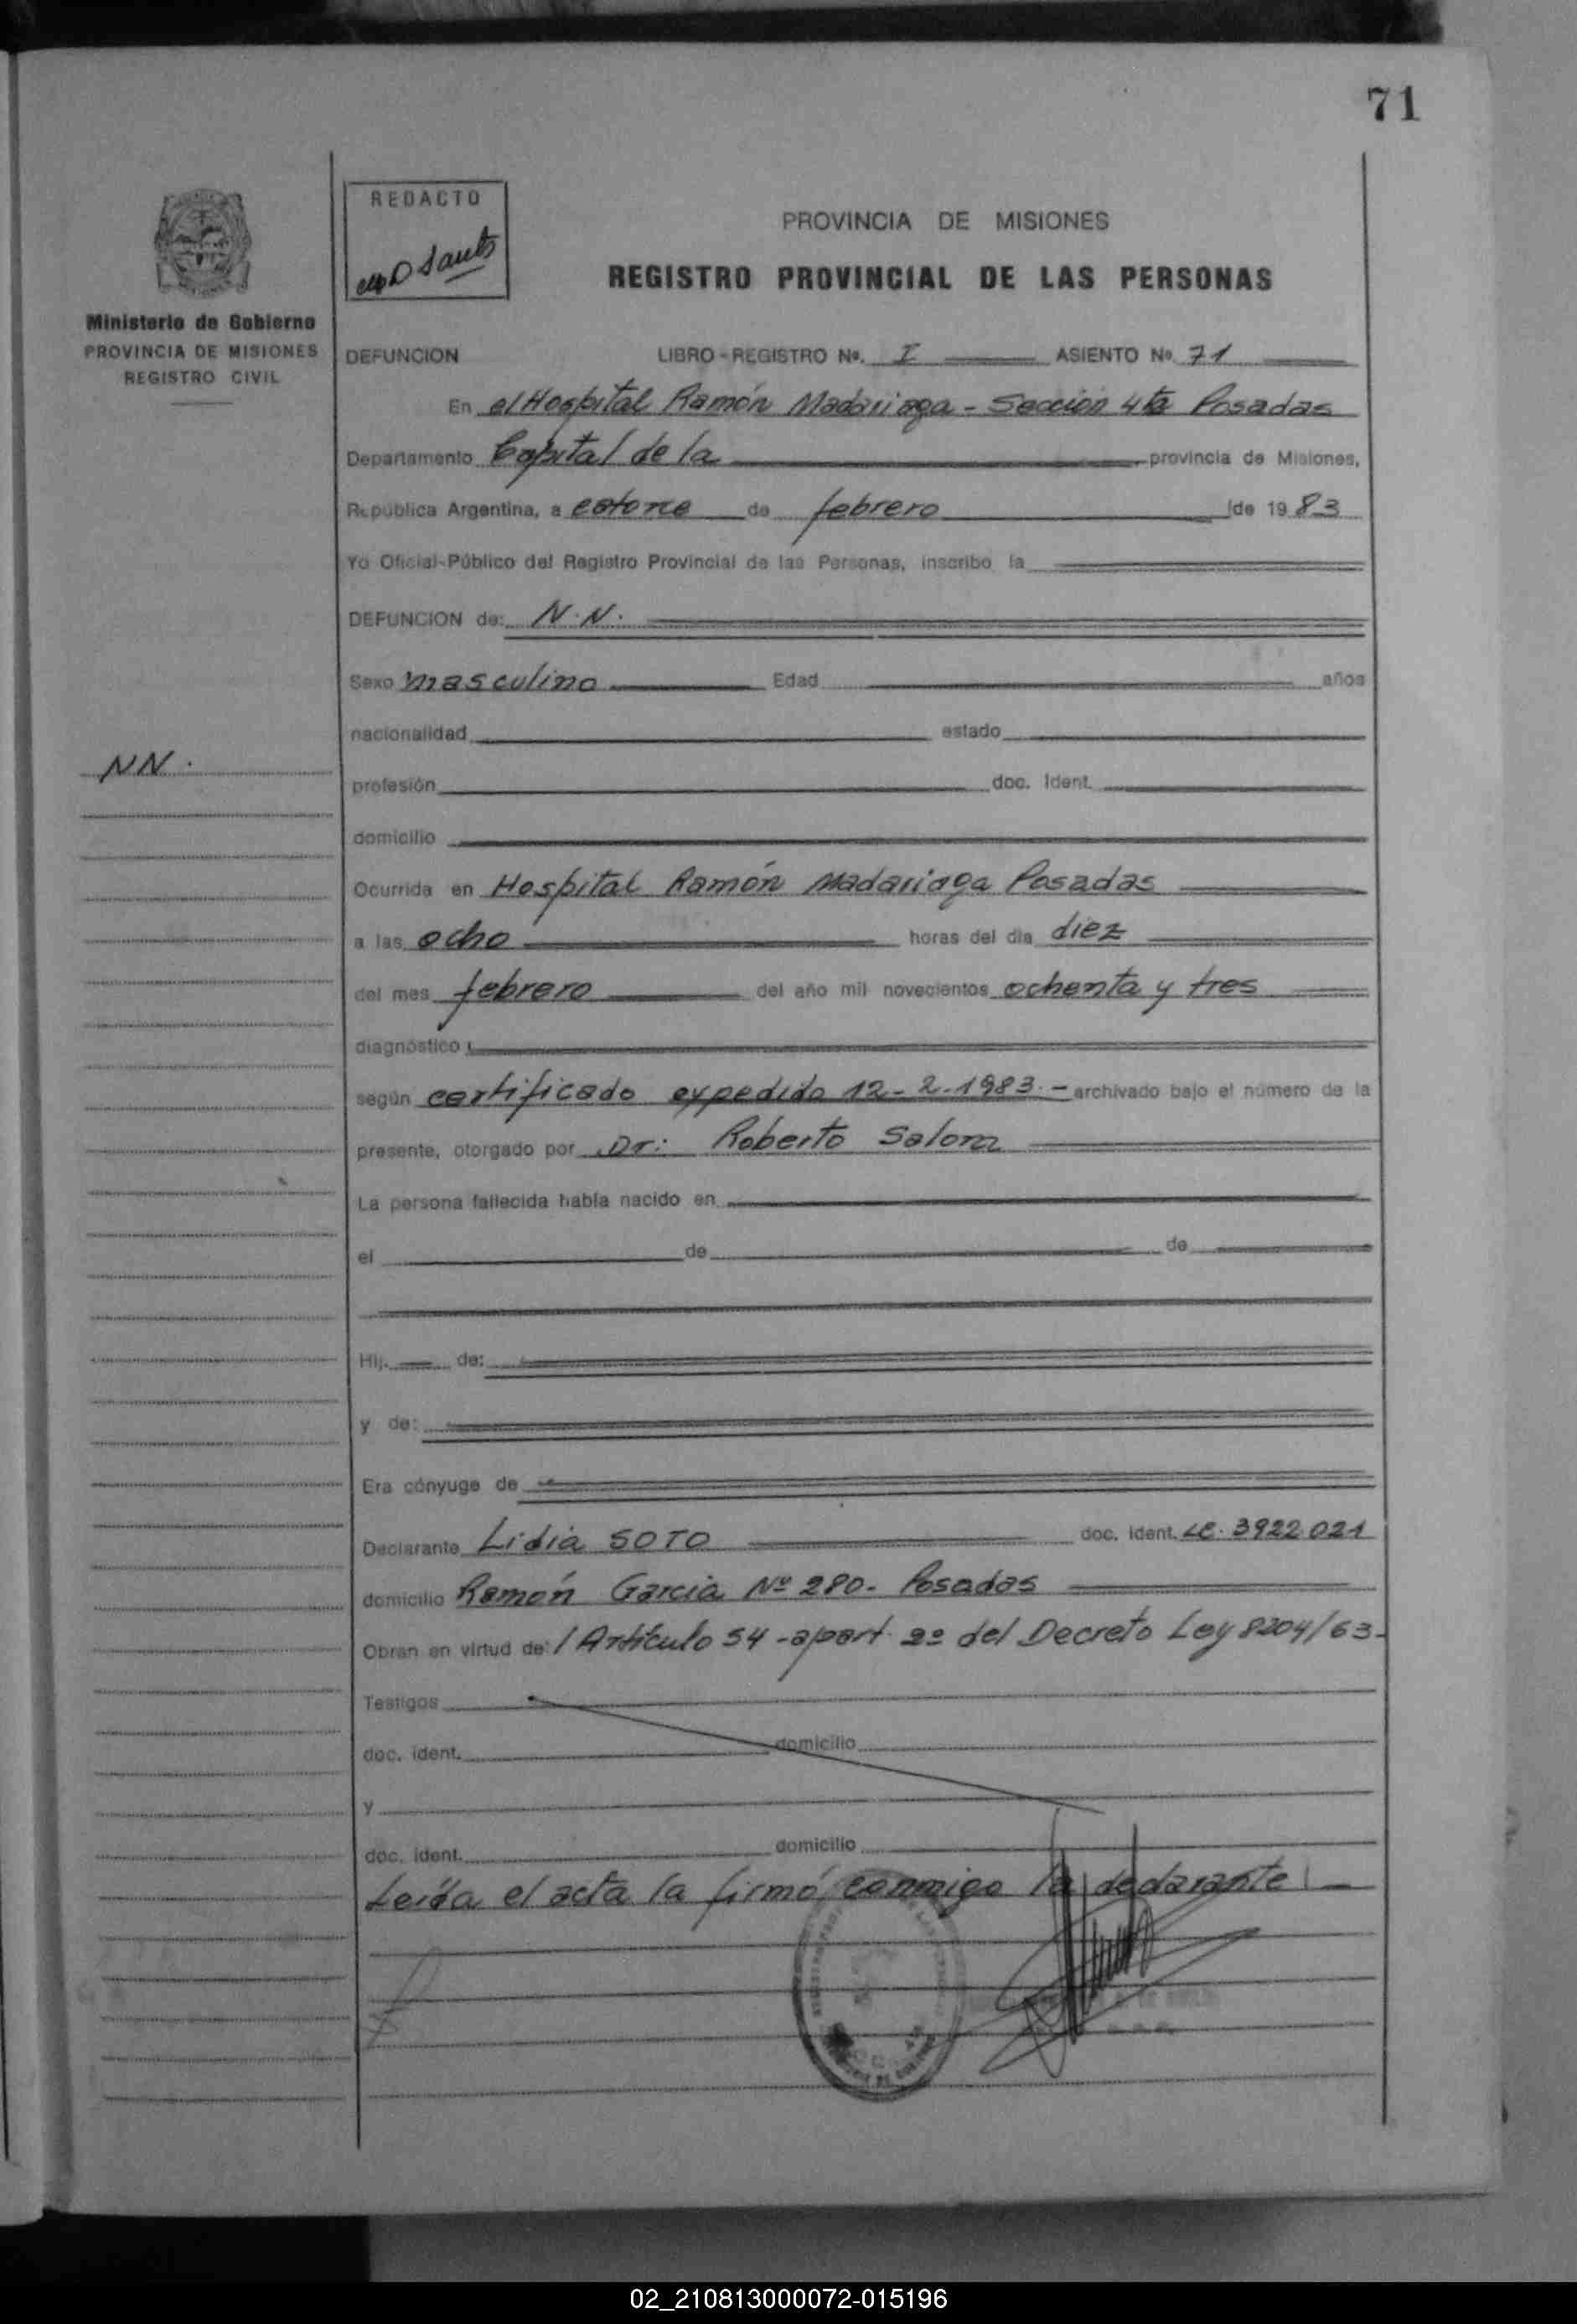 71
REDACTO
Ministerio de Gobierno
PROVINCIA DE MISIONES
REGISTRO CIVIL
PROVINCIA DE MISIONES
REGISTRO PROVINCIAL DE LAS PERSONAS
DEFUNCION LIBRO-REGISTRO Nº. I ASIENTO Nº 71
En el Hospital Ramón Madariaga - Sección 4ta Posadas
Departamento Capital de la provincia de Misiones,
República Argentina, a catorce de febrero de 1983
Yo Oficial-Público del Registro Provincial de las Personas, inscribo la
DEFUNCION de: N.N.
Sexo masculino Edad años
nacionalidad estado
NN.
profesión doc. Ident.
domicilio
Ocurrida en Hospital Ramón Madariaga Posadas
a las ocho horas del día diez
del mes febrero del año mil novecientos ochenta y tres
diagnóstico
según certificado expedido 12-2-1983.- archivado bajo el número de la
presente, otorgado por Dr: Roberto
La persona fallecida había nacido en
el de de
Hij. de:
y de:
Era cónyuge de
Declarante Lidia SOTO doc. ident. LC. 3922.021
domicilio Ramón Garcia Nº 280- Posadas
Obran en virtud de: l Artículo 54 -apart. 2º del Decreto Ley 8204/63-
Testigos
doc. ident. domicilio
y
doc. ident. domicilio
Leída el acta la firmó conmigo la declarante
02_210813000072-015196